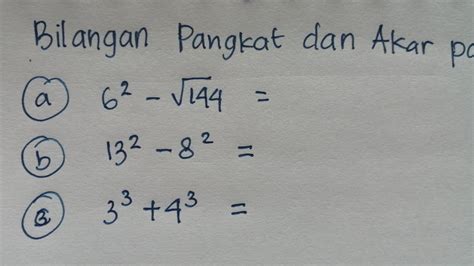 Bilangan Pangkat dan Akar
a 6² - √144 =
b 13² - 8² =
3³ + 4³ =